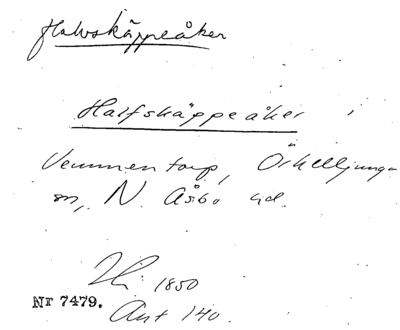 Halvskäppeåker
Halfskäppeåker
Vemmentorp, Örkelljunga
sn, N. Åsbo hd.
1850
Nr 7479.
Ant 140.